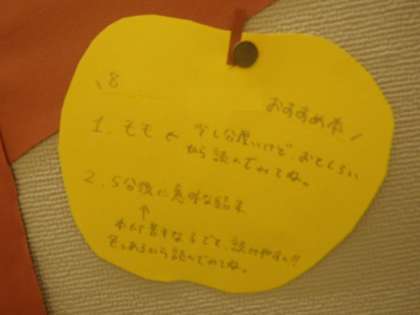 おすすめ本!
1. モモ ← 少し分厚いけど、おもしろい
から読んでみてね。
2. 5分後に意外な結末
↑
本が苦手な人でも、読みやすい!!
色々あるから読んでみてね。